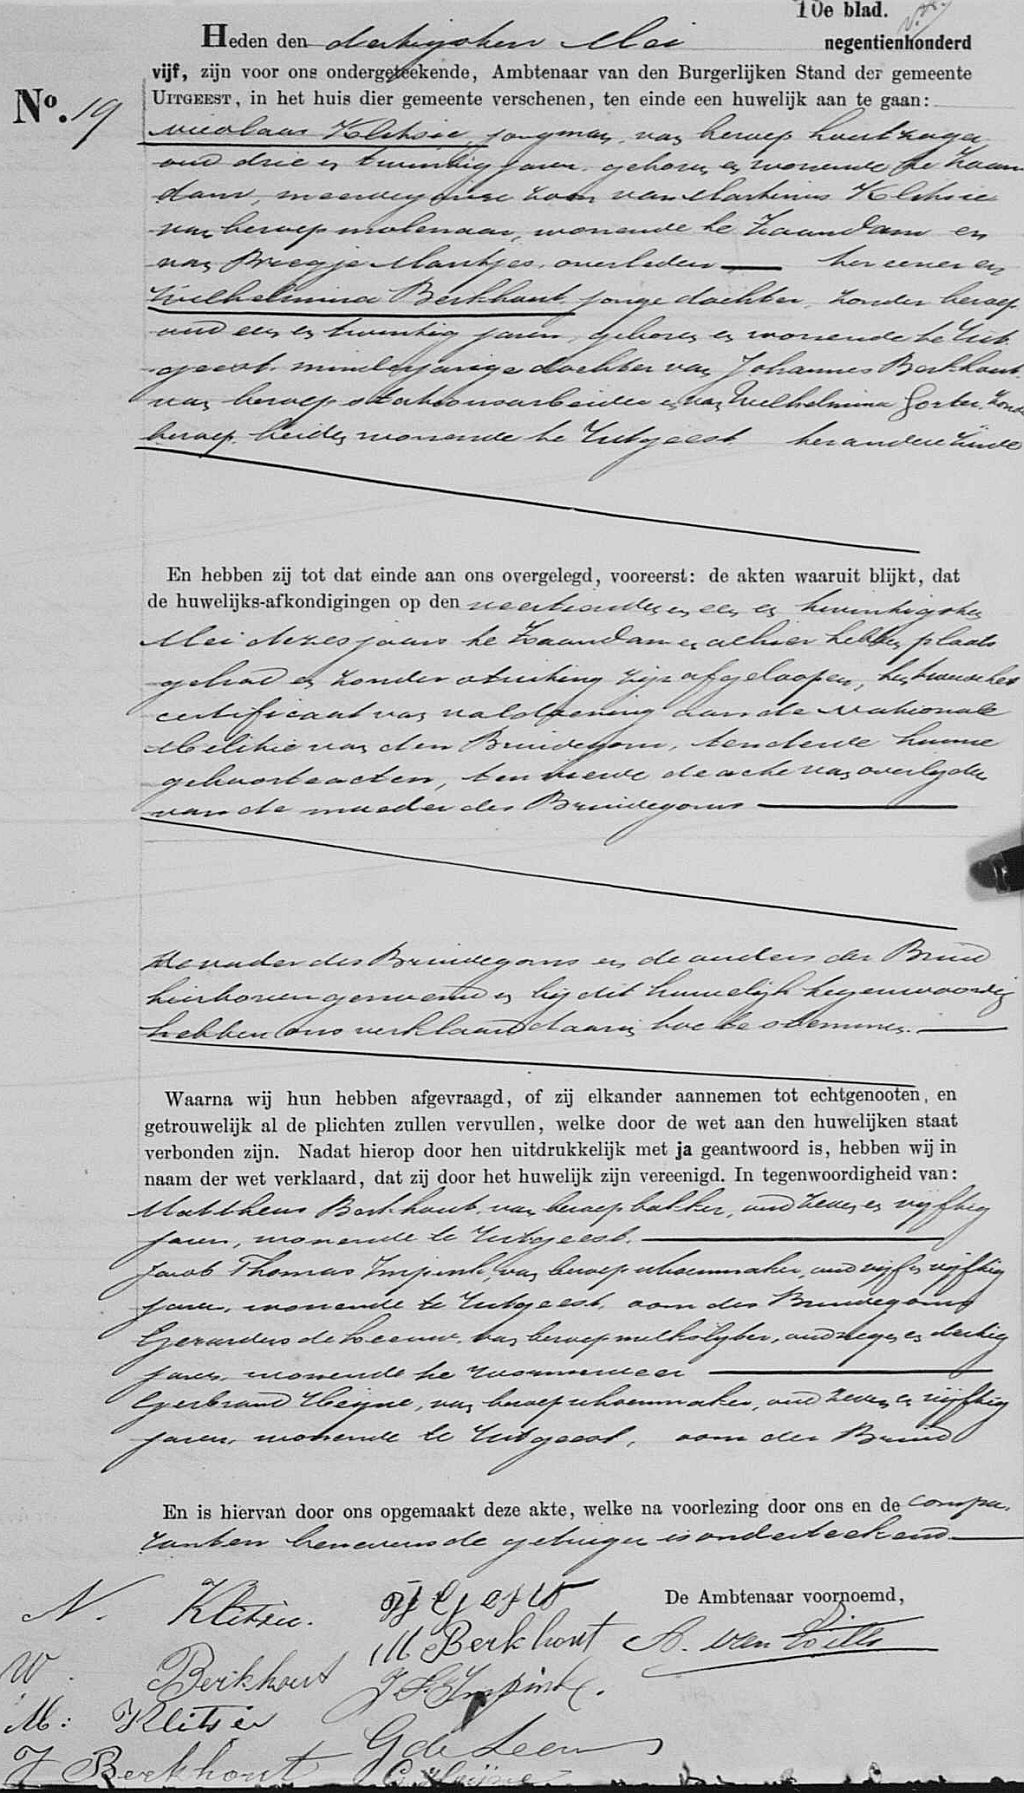 10e blad.
Heden den dertigsten Mei negentienhonderd
vijf, zijn voor ons ondergeteekende, Ambtenaar van den Burgerlijken Stand der gemeente
No. 19 UITGEEST, in het huis dier gemeente verschenen, ten einde een huwelijk aan te gaan:
Nicolaas Klitsie, jongman, van beroep houtzager
oud drie en twintig jaren, geboren en wonende te Zaan
dam, meerderjarige zoon van Martinus Klitsie
van beroep molenaar, wonende te Zaandam en
van Breegje Mantjes, overleden ter eener en
Wilhelmina Berkhout jonge dochter, zonder beroep
oud een en twintig jaren, geboren en wonende te Uit
geest, minderjarige dochter van Johannes Berkhout
van beroep stationsarbeider en van Wilhelmina Gorter, zonder
beroep, beiden wonende te Uitgeest ter andere zijde
En hebben zij tot dat einde aan ons overgelegd, vooreerst: de akten waaruit blijkt, dat
de huwelijks-afkondigingen op den veertienden en een en twintigsten
Mei dezes jaars te Zaandam en alhier hebben plaats
gehad en zonder stuiting zijn afgeloopen, ten tweede het
certificaat van voldoening aan de Nationale
Militie van den Bruidegom, ten derde hunne
geboorteacten, ten vierde de acte van overlijden
van de moeder des Bruidegoms
De vader des Bruidegoms en de ouders der Bruid
hierboven genoemd en bij dit huwelijk tegenwoordig
hebben ons verklaard daarin toe te stemmen.
Waarna wij hun hebben afgevraagd, of zij elkander aannemen tot echtgenooten, en
getrouwelijk al de plichten zullen vervullen, welke door de wet aan den huwelijken staat
verbonden zijn. Nadat hierop door hen uitdrukkelijk met ja geantwoord is, hebben wij in
naam der wet verklaard, dat zij door het huwelijk zijn vereenigd. In tegenwoordigheid van:
Mattheus Berkhout, van beroep bakker, oud zeven en vijftig
jaren, wonende te Uitgeest.
Jacob Thomas Impink, van beroep schoenmaker, oud vijf en vijftig
jaren, wonende te Uitgeest, oom des Bruidegoms
Gerardus de Leeuw, van beroep melkslijter, oud negen en dertig
jaren, wonende te Wormerveer
Gerbrand Heijne, van beroep schoenmaker, oud zeven en vijftig
jaren, wonende te Uitgeest, oom der Bruid
En is hiervan door ons opgemaakt deze akte, welke na voorlezing door ons en de compa
ranten benevens de getuigen is onderteekend
De Ambtenaar voornoemd,
N. Klitsie.
M Berkhout
W. Berkhout
J T Impink.
M: Klitsie
G de Leeuw
J Berkhout
G Heijne